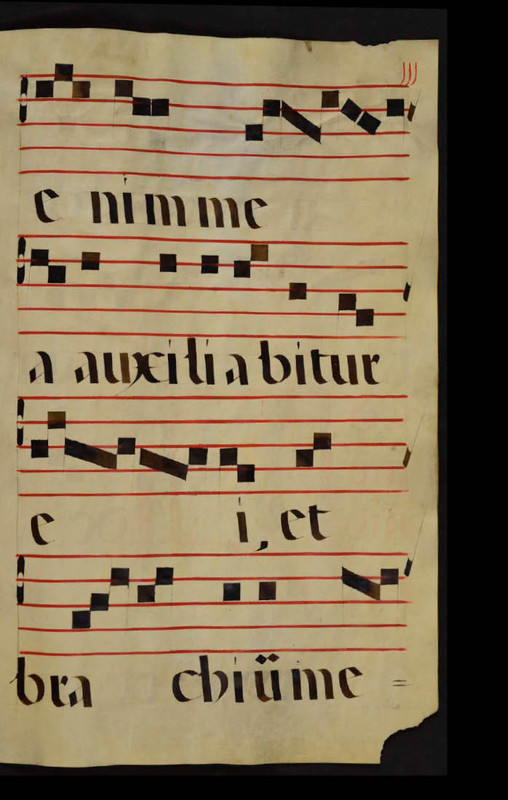 III
e nim me
a auxilia bitur
e i, et
bra chiũ me =